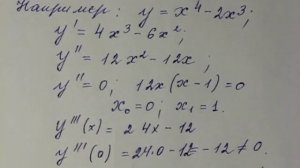 Например: y = x⁴ - 2x³;
y' = 4x³ - 6x²;
y'' = 12x² - 12x;
y'' = 0; 12x(x - 1) = 0
x₀ = 0; x₁ = 1.
y'''(x) = 24x - 12
y'''(0) = 24·0 - 12 = -12 ≠ 0.